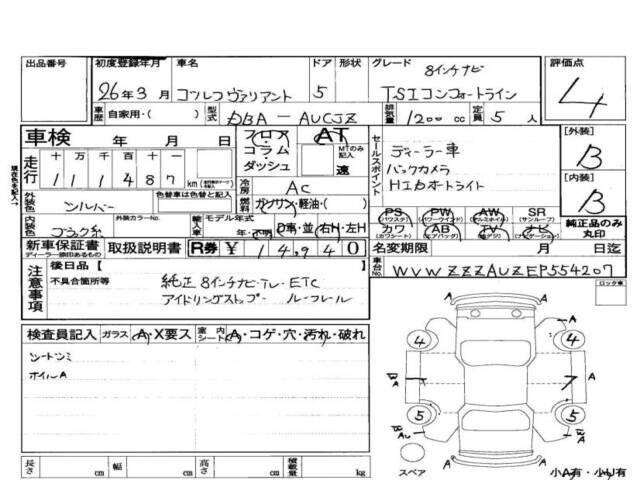 出品番号 初度登録年月 車名 ドア 形状 グレード 評価点
26年3月 ゴルフヴァリアント 5 8インチナビ TSIコンフォートライン 4
車歴 自家用・( ) 型式 DBA-AUCJZ 排気量 1200cc 定員 5人
車検 年 月 日 フロア コラム ダッシュ AT MTのみ記入 速
走行 十万千百十一 111487 km
冷房 AC
燃料 ガソリン・軽油・( )
外装色 シルバー 色替車は色替と記入
内装色 ブラック系 外装カラーNo. 輸入車 モデル年式 年・不明 D車・並 右H・左H
セールスポイント
ディーラー車
バックカメラ
HIDオートライト
[外装] B
[内装] B
PS (パワステ) PW (パワーウインド) AW (アルミホイル) SR (サンルーフ) 純正品のみ丸印
カワ (カワシート) AB (エアバッグ) TV (アナデジ) ナビ (ナビゲーション)
新車保証書 ディーラー捺印あるもの 取扱説明書 R券 ¥ 14,940
名変期限 月 日迄
車台No. WVWZZZAUZEP554207
ロック車
注意事項 後日品( )
不具合箇所等 純正8インチナビ・TV・ETC
アイドリングストップ ルーフレール
検査員記入 ガラス A・X要ス 室内シート A・コゲ・穴・汚れ・破れ
シートシミ
ホイルA
A A
4 4
A A
5 5
A A
スペア
小A有・小U有
長さ cm 幅 cm 高さ cm 積載量 kg
現在色を記入→